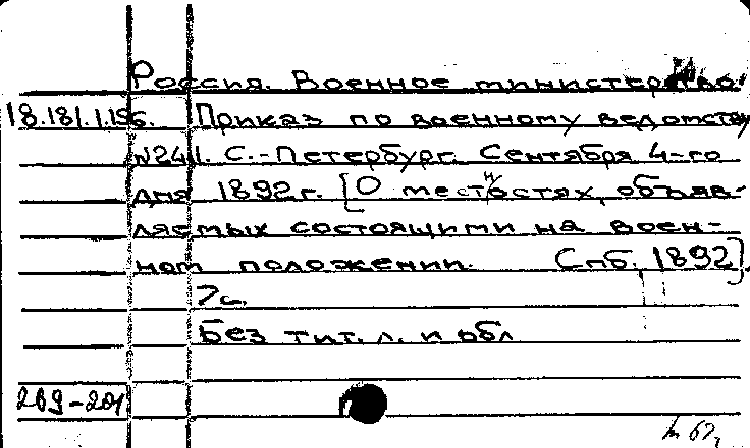 Россия. Военное министерство.
18.181.1.156. Приказ по военному ведомству
№241. С.-Петербург. Сентября 4-го
дня 1892 г. [О местностях, объяв-
ляемых состоящими на воен-
ном положении. Спб., 1892].
7 с.
Без тит. л. и обл
209-201